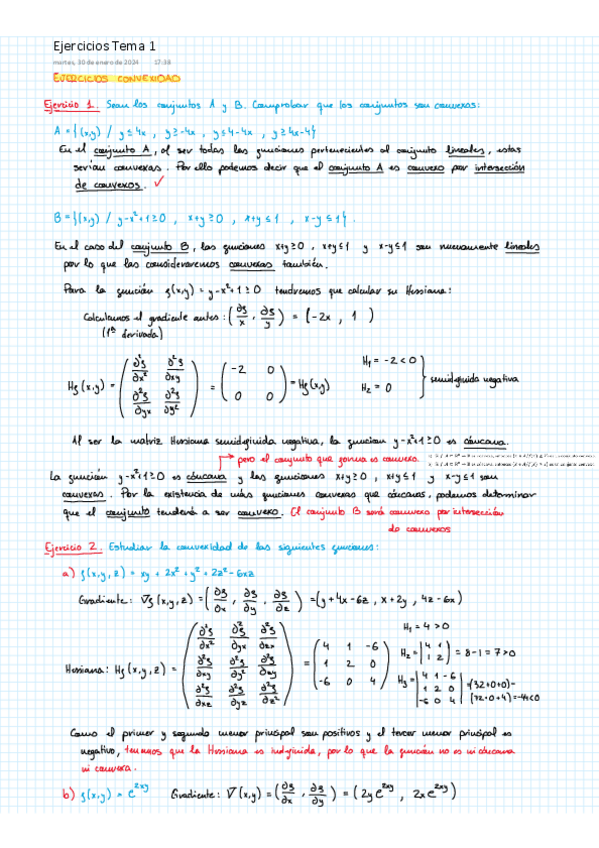 Ejercicios Tema 1
martes, 30 de enero de 2024 17:38
EJERCICIOS CONVEXIDAD
Ejercicio 1. Sean los conjuntos A y B. Comprobar que los conjuntos son convexos:
A = {(x,y) / y ≤ 4x , y ≥ -4x , y ≤ 4-4x , y ≥ 4x-4}
En el conjunto A, al ser todas las funciones pertenecientes al conjunto lineales, estas
serían convexas. Por ello podemos decir que el conjunto A es convexo por intersección
de convexos. ✓
B = {(x,y) / y-x²+1 ≥ 0 , x+y ≥ 0 , x+y ≤ 1 , x-y ≤ 1}.
En el caso del conjunto B, las funciones x+y ≥ 0 , x+y ≤ 1 y x-y ≤ 1 son nuevamente lineales
por lo que las consideraremos convexas también.
Para la función f(x,y) = y-x²+1 ≥ 0 tendremos que calcular su Hessiana:
Calculamos el gradiente antes: (∂f/x , ∂f/y) = (-2x , 1)
(1ª derivada)
Hf(x,y) = (∂²f/∂x² ∂²f/∂xy ∂²f/∂yx ∂²f/∂y²) = (-2 0 0 0) = Hf(x,y) H₁ = -2 < 0 H₂ = 0 } semidefinida negativa
Al ser la matriz Hessiana semidefinida negativa, la funcion y-x²+1 ≥ 0 es cóncava.
pero el conjunto que forma es convexo
La función y-x²+1 ≥ 0 es cóncava y las funciones x+y ≥ 0 , x+y ≤ 1 y x-y ≤ 1 son
convexas. Por la existencia de más funciones convexas que cóncavas, podemos determinar
que el conjunto tenderá a ser convexo. El conjunto B será convexo por intersección
de convexos
Ejercicio 2. Estudiar la convexidad de las siguientes funciones:
a) f(x,y,z) = xy + 2x² + y² + 2z² - 6xz
Gradiente: ∇f(x,y,z) = (∂f/∂x , ∂f/∂y , ∂f/∂z) = (y+4x-6z , x+2y , 4z-6x)
Hessiana: Hf(x,y,z) = (∂²f/∂x² ∂²f/∂yx ∂²f/∂zx ∂²f/∂xy ∂²f/∂y² ∂²f/∂zy ∂²f/∂xz ∂²f/∂yz ∂²f/∂z²) = (4 1 -6 1 2 0 -6 0 4)
H₁ = 4 > 0
H₂ = |4 1 1 2| = 8-1 = 7 > 0
H₃ = |4 1 -6 1 2 0 -6 0 4| (32+0+0)-
(72+0+4) = -44 < 0
Como el primer y segundo menor principal son positivos y el tercer menor principal es
negativo, tenemos que la Hessiana es indefinida, por lo que la función no es ni cóncava
ni convexa.
b) f(x,y) = e^2xy Gradiente: ∇(x,y) = (∂f/∂x , ∂f/∂y) = (2y e^2xy , 2x e^2xy)